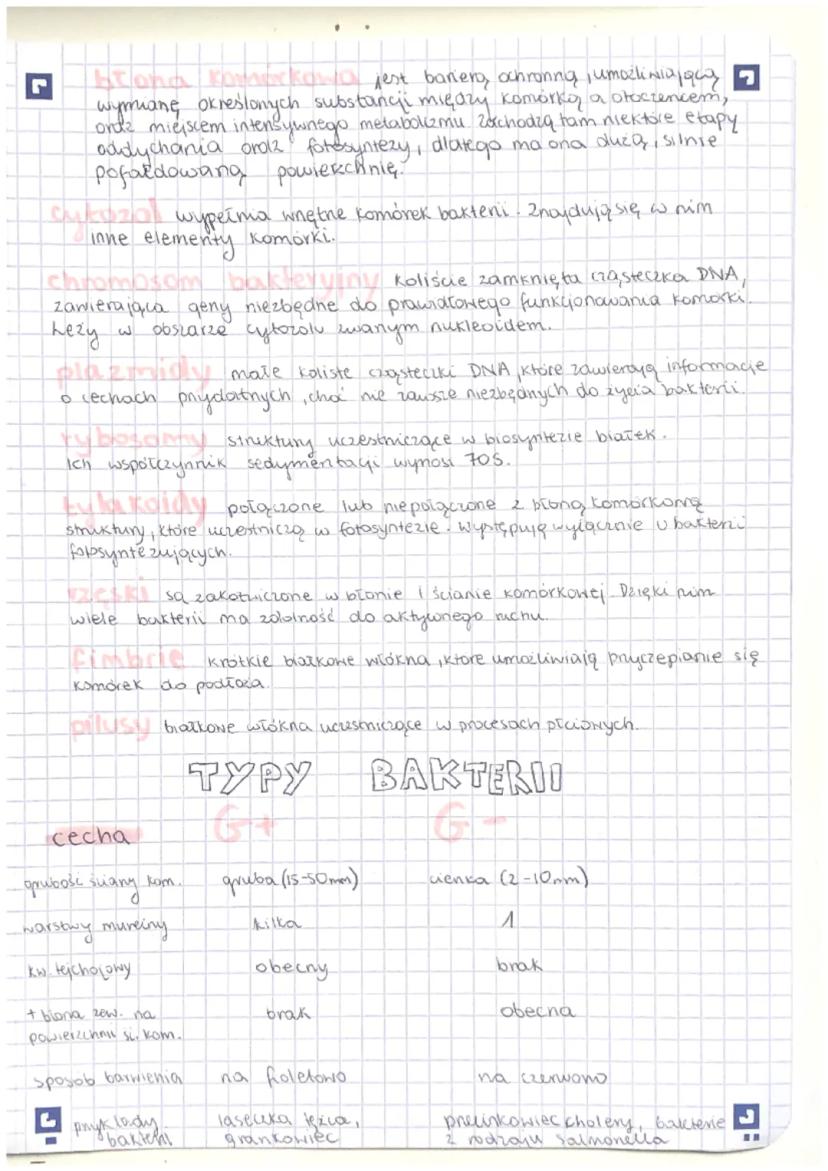 błona komórkowa jest barierą ochronną, umożliwiającą
wymianę określonych substancji między komórką a otoczeniem,
oraz miejscem intensywnego metabolizmu. Zachodzą tam niektóre etapy
oddychania oraz fotosyntezy, dlatego ma ona dużą, silnie
pofałdowaną powierzchnię.
cytozol wypełnia wnętrze komórek bakterii. Znajdują się w nim
inne elementy komórki.
chromosom bakteryjny koliście zamknięta cząsteczka DNA,
zawierająca geny niezbędne do prawidłowego funkcjonowania komórki.
Leży w obszarze cytozolu zwanym nukleoidem.
plazmidy małe koliste cząsteczki DNA, które zawierają informacje
o cechach przydatnych, choć nie zawsze niezbędnych do życia bakterii.
rybosomy struktury uczestniczące w biosyntezie białek.
Ich współczynnik sedymentacji wynosi 70S.
tylakoidy połączone lub niepołączone z błoną komórkową
struktury, które uczestniczą w fotosyntezie. Występują wyłącznie u bakterii
fotosyntezujących.
rzęski są zakotwiczone w błonie i ścianie komórkowej. Dzięki nim
wiele bakterii ma zdolność do aktywnego ruchu.
fimbrie krótkie białkowe włókna, które umożliwiają przyczepianie się
komórek do podłoża.
pilusy białkowe włókna uczestniczące w procesach płciowych.
TYPY BAKTERII
cecha G+ G-
grubość ściany kom. gruba (15-50nm) cienka (2-10nm)
warstwy mureiny kilka 1
kw. tejchojowy obecny brak
+ błona zew. na brak obecna
powierzchni śc. kom.
sposób barwienia na fioletowo na czerwono
przykłady laseczka tężca, przecinkowiec cholery, bakterie
bakterii gronkowiec z rodzaju salmonella